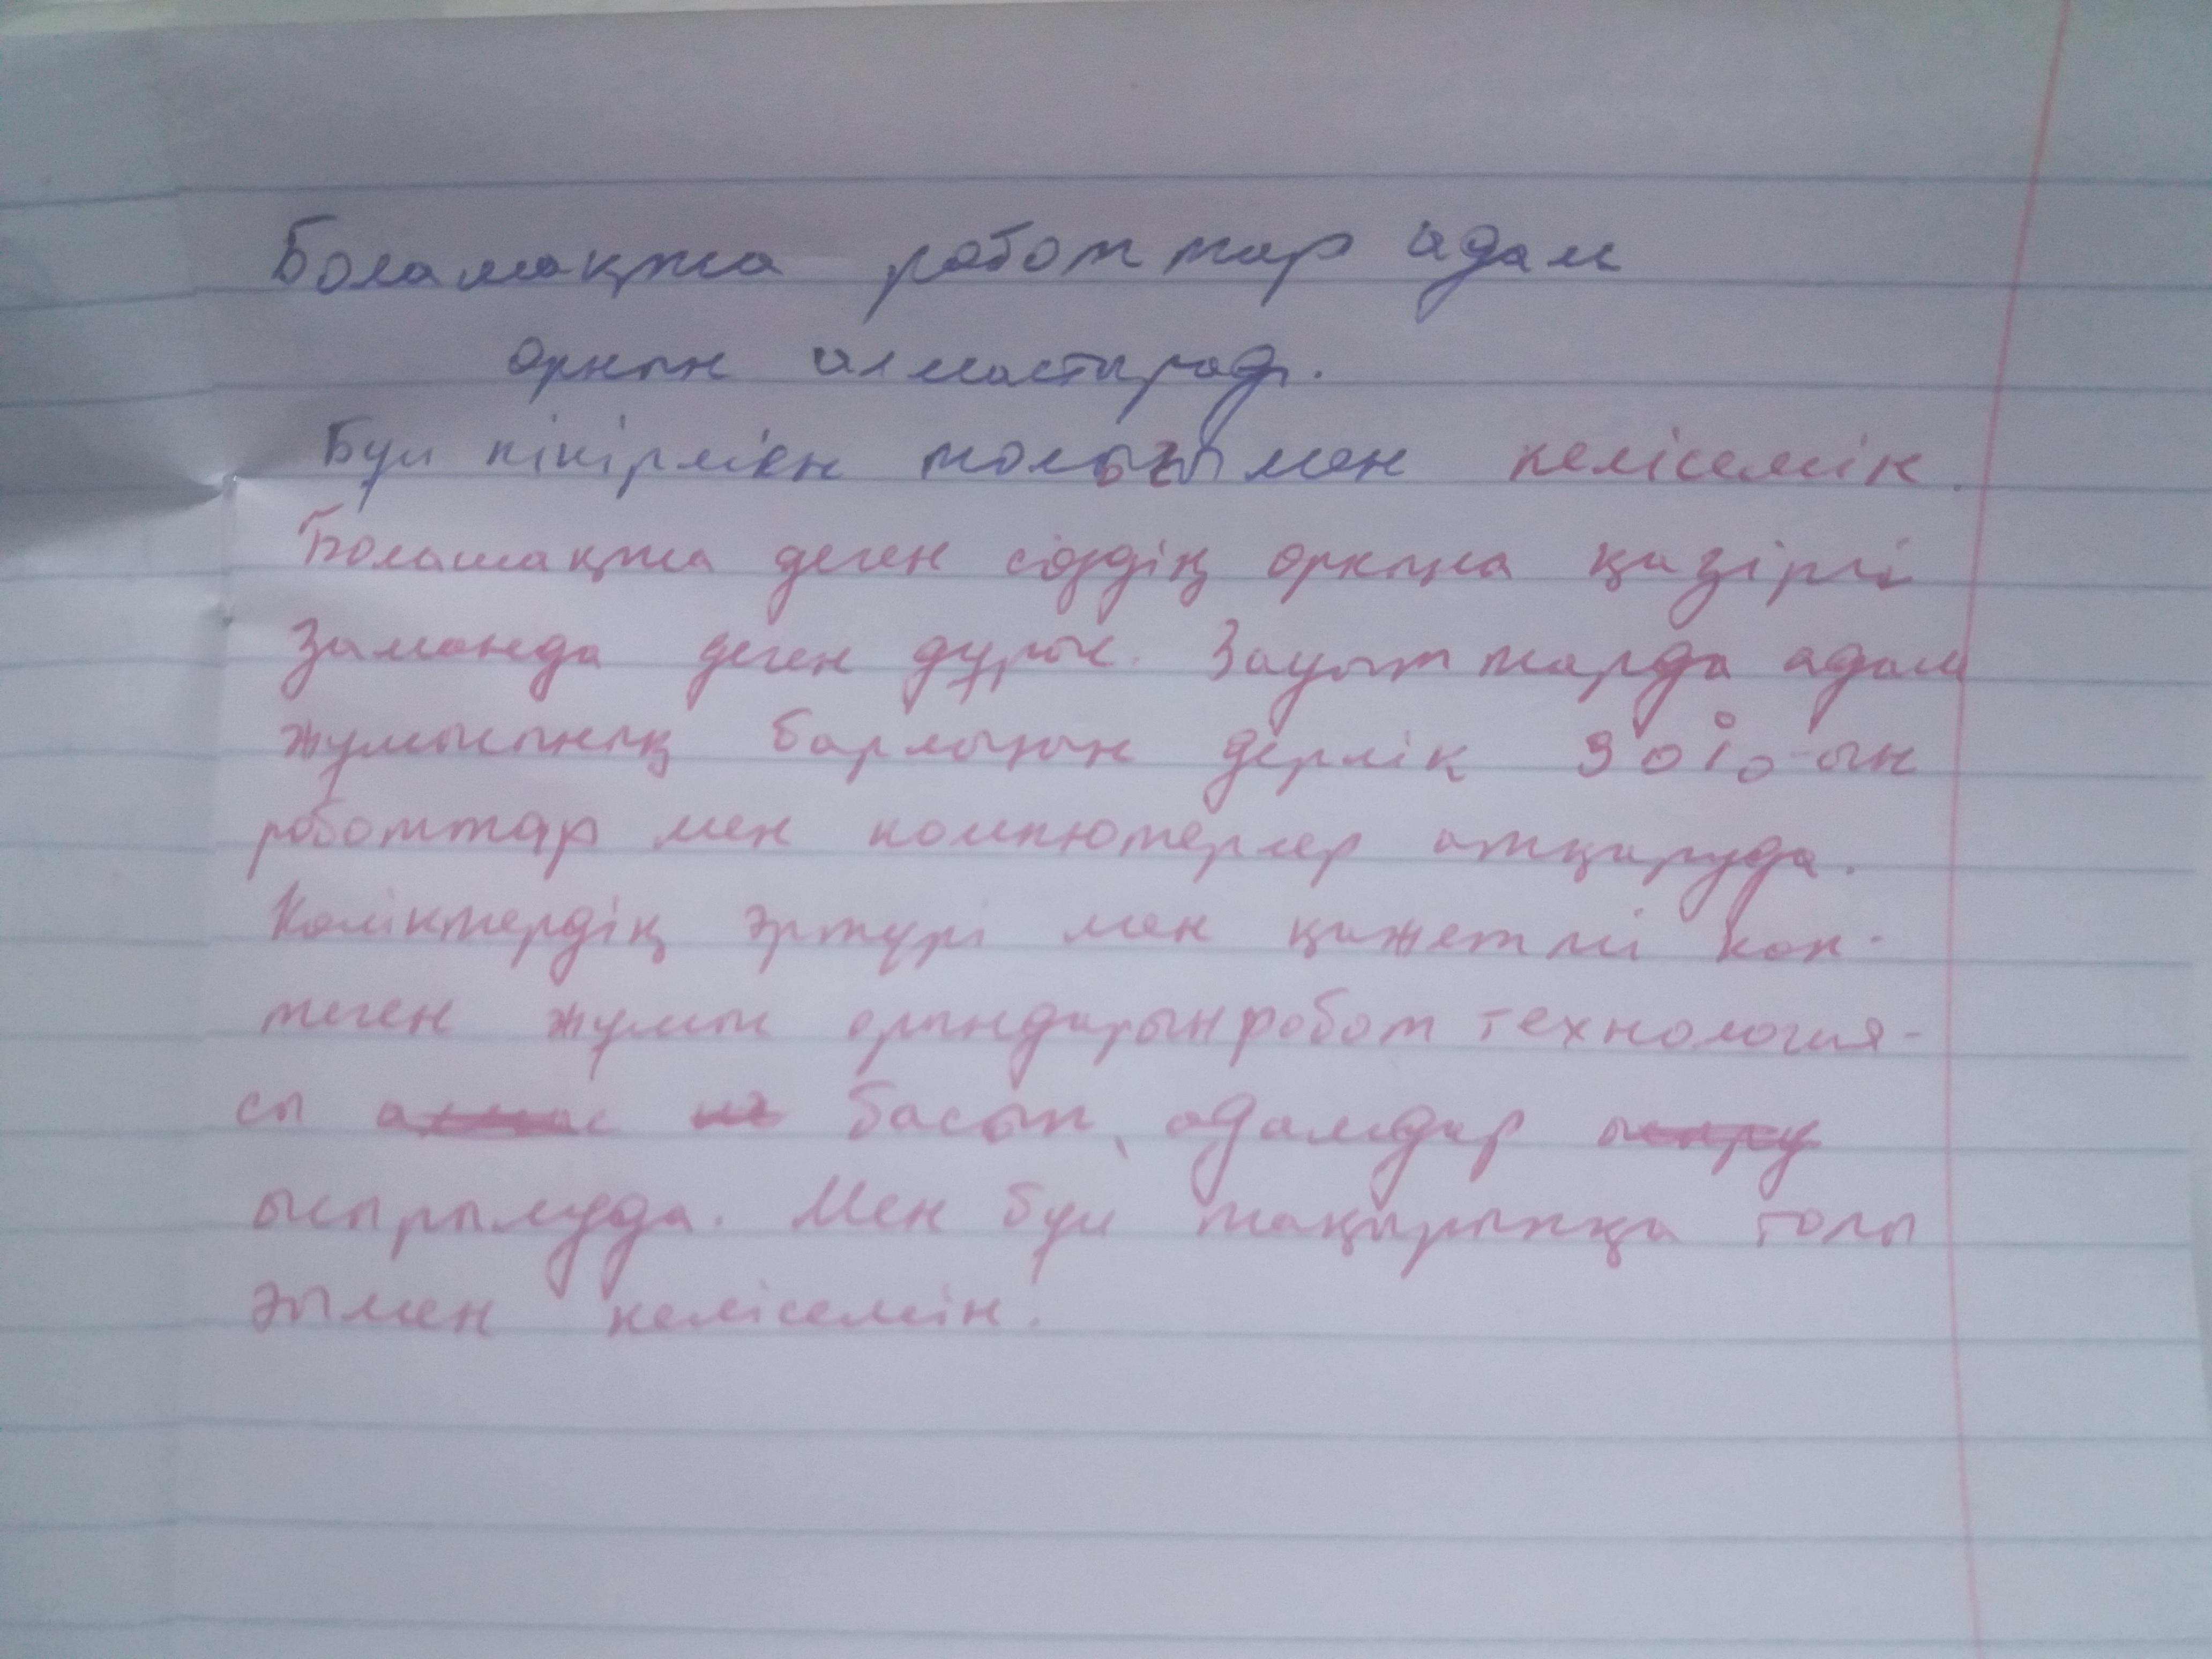 Болашақта роботтар адам
орнын алмастырад.
Бұл пікірмен толығымен келісемін.
Болашақта деген сөздің орнына қазіргі
заманда деген дұрыс. Зауыттарда адам
жұмысының барлығын дерлік 90%-ын
роботтар мен компютерлер атқаруда.
Көліктердің әртүрі мен қажетті көп-
теген жұмыс орындарын робот технология-
сы басып, адамдар
ысырылуда. Мен бұл тақырыпқа толы
ғымен келісемін.